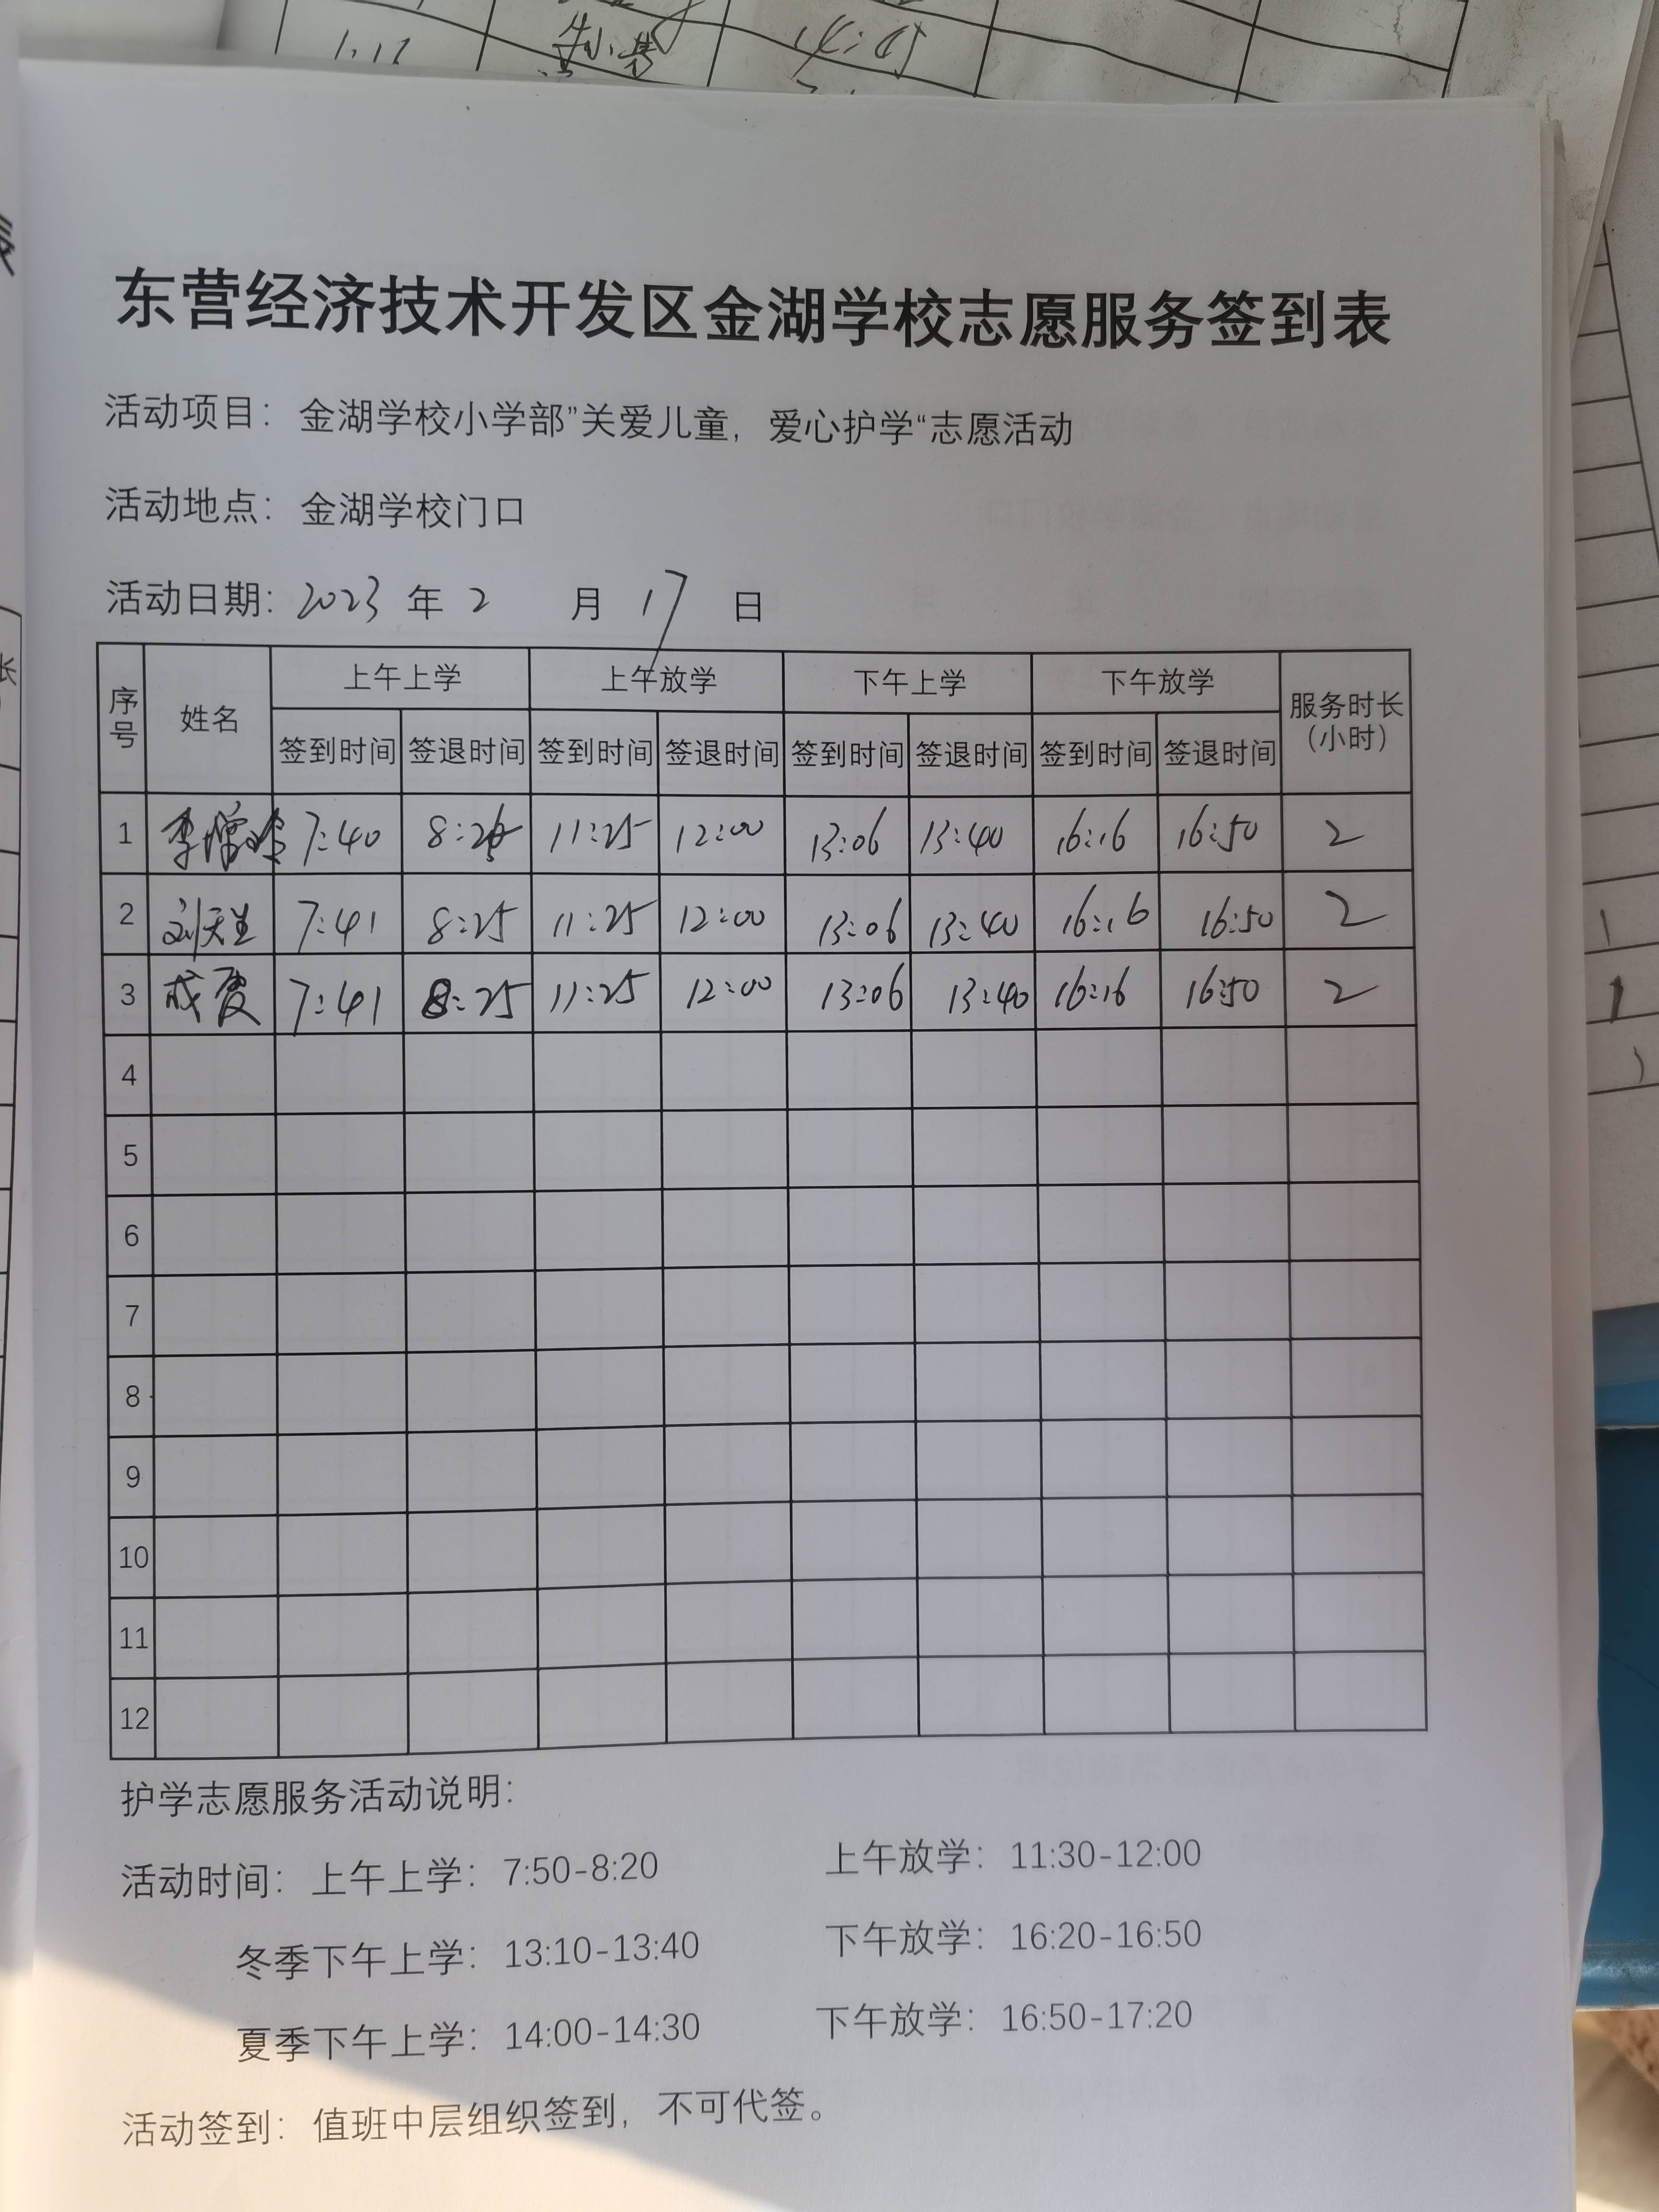 1.17 14:05
东营经济技术开发区金湖学校志愿服务签到表
活动项目：金湖学校小学部”关爱儿童，爱心护学“志愿活动
活动地点：金湖学校门口
活动日期：2023 年 2 月 17 日
序号 姓名 上午上学 上午放学 下午上学 下午放学 服务时长（小时）
签到时间 签退时间 签到时间 签退时间 签到时间 签退时间 签到时间 签退时间
1 李 7:40 8:25 11:25 12:00 13:06 13:40 16:16 16:50 2
2 刘天生 7:41 8:25 11:25 12:00 13:06 13:40 16:16 16:50 2
3 7:41 8:25 11:25 12:00 13:06 13:40 16:16 16:50 2
4
5
6
7
8
9
10
11
12
护学志愿服务活动说明：
活动时间：上午上学：7:50-8:20 上午放学：11:30-12:00
冬季下午上学：13:10-13:40 下午放学：16:20-16:50
夏季下午上学：14:00-14:30 下午放学：16:50-17:20
活动签到：值班中层组织签到，不可代签。